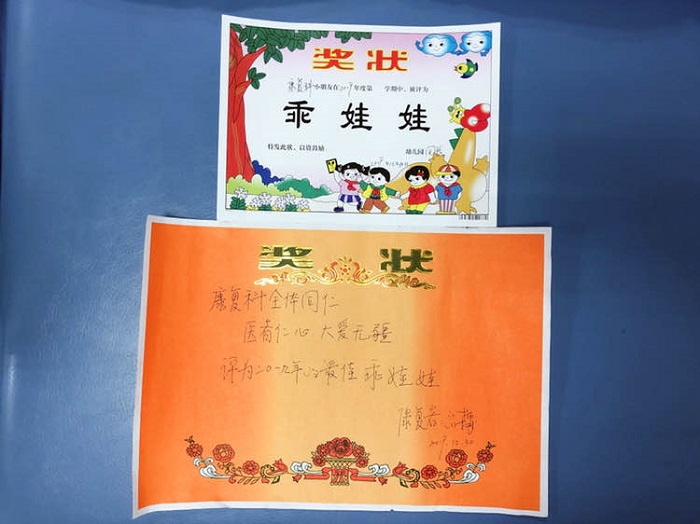 奖状
康复科小朋友在2019年度第 学期中，被评为
乖娃娃
特发此状、以资鼓励
幼儿园
奖状
康复科全体同仁
医者仁心 大爱无疆
评为二〇一九年 最佳乖娃娃
康复者
2019.12.30